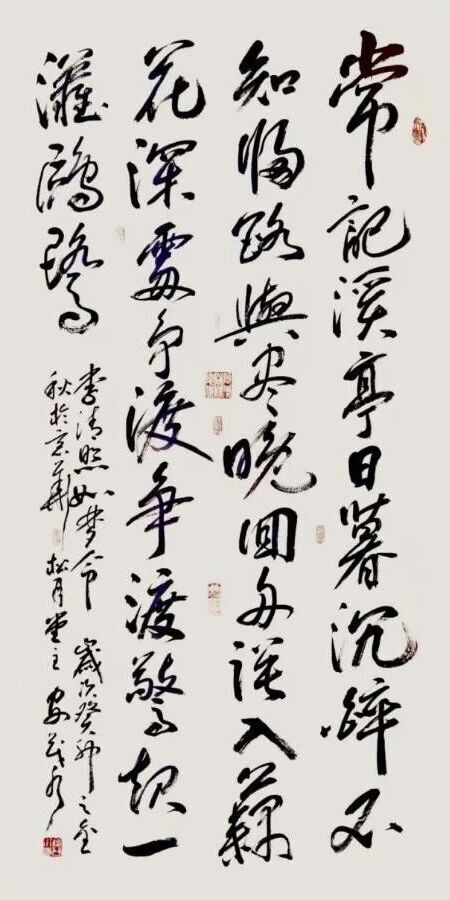 常記溪亭日暮沉醉不
知歸路興尽晚回舟誤入藕
花深處争渡争渡驚起一
灘鷗鷺
李清照如梦令 歲次癸卯之金
秋於京華 松月堂主